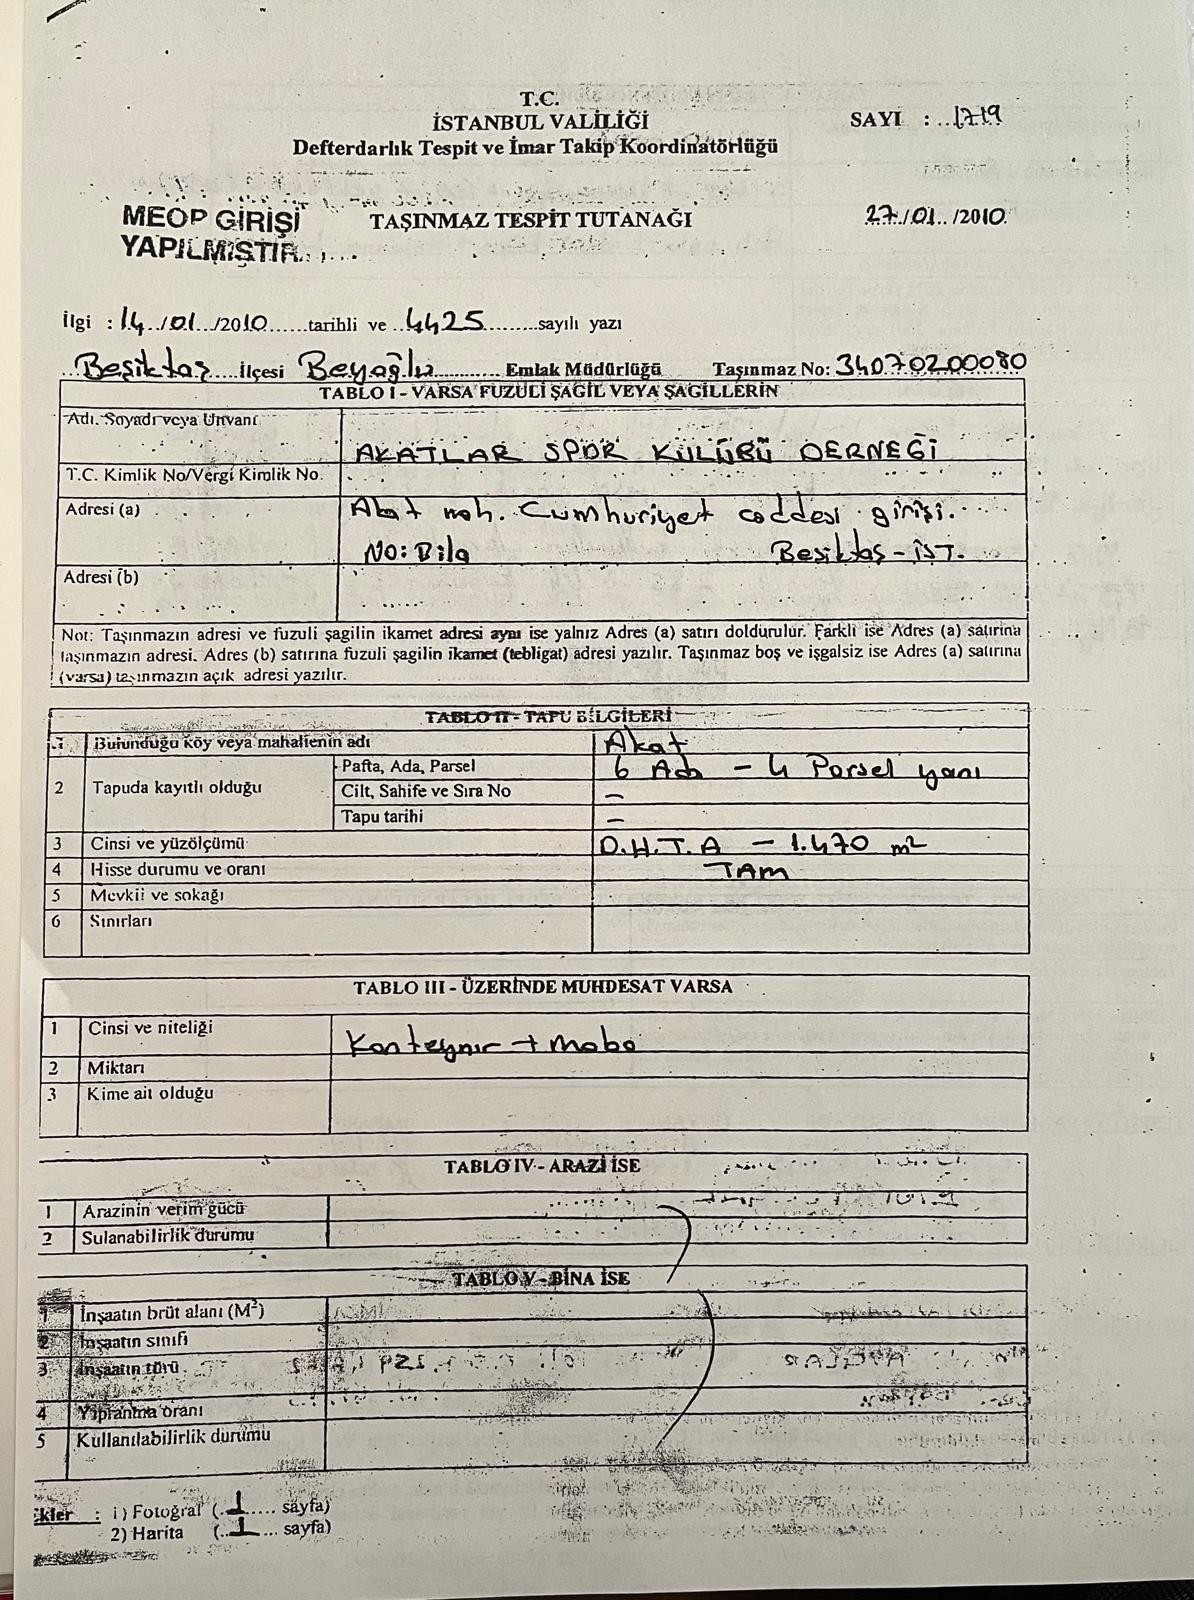 T.C.
İSTANBUL VALİLİĞİ
Defterdarlık Tespit ve İmar Takip Koordinatörlüğü
SAYI : ..1719
MEOP GİRİŞİ
YAPILMIŞTIR
TAŞINMAZ TESPİT TUTANAĞI
27./01../2010.
İlgi : 14../01../2010......tarihli ve ..4425.........sayılı yazı
Beşiktaş....İlçesi Beyoğlu.......... Emlak Müdürlüğü Taşınmaz No: 34070200080
TABLO I - VARSA FUZULİ ŞAGİL VEYA ŞAGİLLERİN
Adı. Soyadı veya Unvanı
AKATLAR SPOR KULÜBÜ DERNEĞİ
T.C. Kimlik No/Vergi Kimlik No.
Adresi (a) Akat mah. Cumhuriyet caddesi girişi.
NO: Bila Beşiktaş - İST.
Adresi (b)
Not: Taşınmazın adresi ve fuzuli şagilin ikamet adresi aynı ise yalnız Adres (a) satırı doldurulur. Farklı ise Adres (a) satırına
taşınmazın adresi. Adres (b) satırına fuzuli şagilin ikamet (tebligat) adresi yazılır. Taşınmaz boş ve işgalsiz ise Adres (a) satırına
(varsa) taşınmazın açık adresi yazılır.
TABLO II - TAPU BİLGİLERİ
1 Bulunduğu köy veya mahallenin adı Akat
2 Tapuda kayıtlı olduğu Pafta, Ada, Parsel 6 Ada - 4 Parsel yanı
Cilt, Sahife ve Sıra No -
Tapu tarihi -
3 Cinsi ve yüzölçümü D.H.T.A - 1.470 m²
4 Hisse durumu ve oranı TAM
5 Mevkii ve sokağı
6 Sınırları
TABLO III - ÜZERİNDE MUHDESAT VARSA
1 Cinsi ve niteliği Konteynır + Mobo
2 Miktarı
3 Kime ait olduğu
TABLO IV - ARAZİ İSE
1 Arazinin verim gücü
2 Sulanabilirlik durumu
TABLO V - BİNA İSE
1 İnşaatın brüt alanı (M²)
2 İnşaatın sınıfı
3 İnşaatın türü
4 Yıpranma oranı
5 Kullanılabilirlik durumu
Ekler : 1) Fotoğraf (..1.... sayfa)
2) Harita (..1... sayfa)